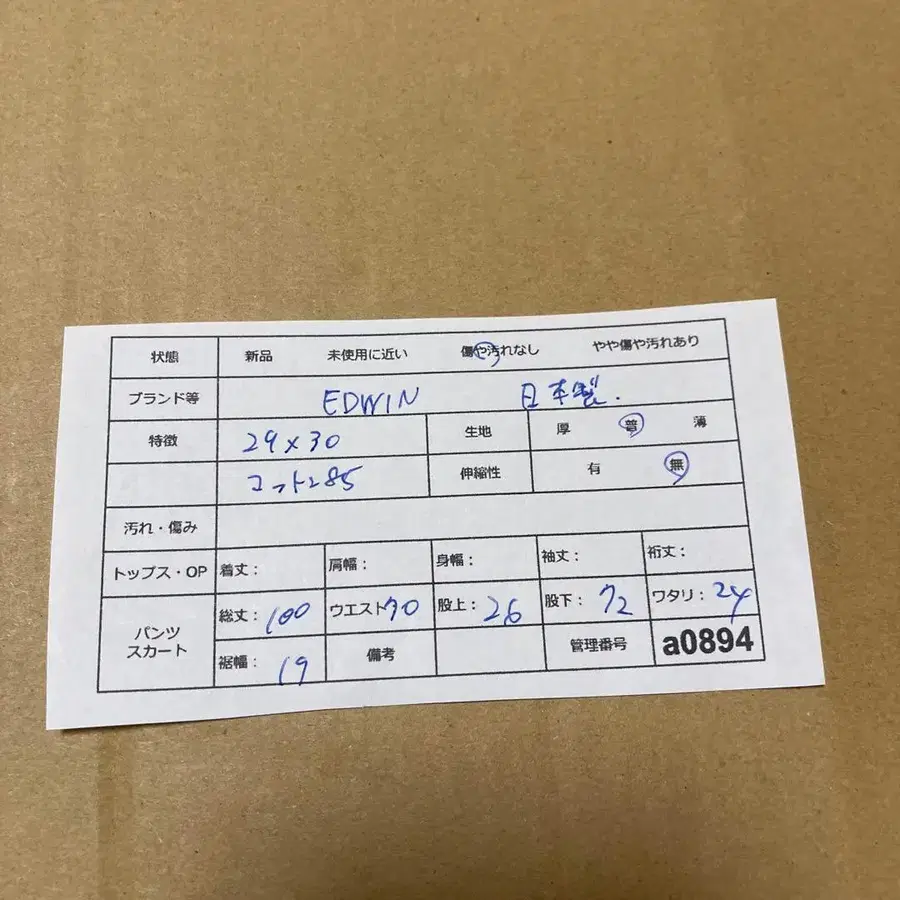 状態 新品 未使用に近い 傷や汚れなし やや傷や汚れあり
ブランド等 EDWIN 日本製.
特徴 29×30 生地 厚 普 薄
コットン85 伸縮性 有 無
汚れ・傷み
トップス・OP 着丈： 肩幅： 身幅： 袖丈： 裄丈：
パンツ スカート 総丈：100 ウエスト70 股上：26 股下：72 ワタリ：24
裾幅：19 備考 管理番号 a0894